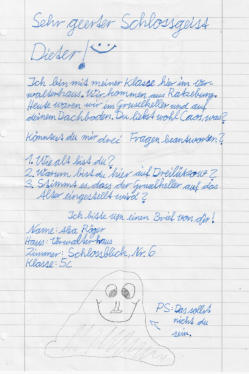 Sehr geerter Schlossgeist
Dieter!
Ich bin mit meiner Klasse hier im Ver-
walterhaus. Wir kommen aus Ratzeburg.
Heute waren wir im Gruselkeller und auf
deinem Dachboden. Du liebst wohl Chaos, was?
Könntest du mir drei Fragen beantworten?
1. Wie alt bist du?
2. Warum bist du hier auf
3. Stimmt es dass der Gruselkeller auf das
Alter eingestellt wird?
Ich bitte um einen Brief von dir!
Name:
Haus: Verwalterhaus
Zimmer: Schlossblick, Nr. 6
Klasse: 5c
PS: Das sollst
nicht du
sein.